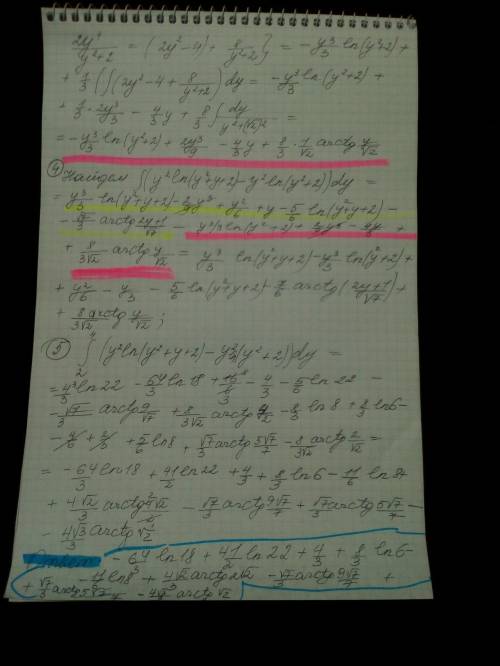 2y⁴/y²+2 = (2y²-4) + 8/y²+2} = -y³/3 ln(y²+2) +
+ 1/3 (∫(2y²-4+ 8/y²+2) dy = -y³/3 ln(y²+2) +
+ 1/3 · 2y³/3 - 4/3 y + 8/3 ∫ dy/y²+(√2)² =
= -y³/3 ln(y²+2) + 2y³/9 - 4/3 y + 8/3 · 1/√2 arctg y/√2
④ Найдем ∫(y² ln(y²+y+2) - y² ln(y²+2)) dy =
= y³/3 ln(y²+y+2) - 2/9 y³ + y²/6 + y - 5/6 ln(y²+y+2) -
- √7/3 arctg 2y+1/√7 - y³/3 ln(y²+2) +
+ 8/3√2 arctg y/√2 = y³/3 ln(y²+y+2) - y³/3 ln(y²+2) +
+ y²/6 - y/3 - 5/6 ln(y²+y+2) - arctg (2y+1/√7) +
+ 8/3√2 arctg y/√2 ;
⑤ ∫₂⁴ (y² ln(y²+y+2) - y² ln(y²+2)) dy =
= 4³/3 ln 22 - 64/3 ln 18 + 16/6 - 4/3 - 5/6 ln 22 -
- √7/3 arctg 9/√7 + 8/3√2 arctg 4/√2 - 8/3 ln 8 + 8/3 ln 6 -
- 4/6 + 2/3 + 5/6 ln 8 + √7/3 arctg 5√7/7 - 8/3√2 arctg 2/√2 =
= -64/3 ln 18 + 41/2 ln 22 + 4/3 + 8/3 ln 6 - 11/6 ln 8
+ 4√2/3 arctg 2√2 - √7/3 arctg 9√7/7 + √7/3 arctg 5√7/7 -
- 4√3/3 arctg √2
Ответ: -64/3 ln 18 + 41/2 ln 22 + 4/3 + 8/3 ln 6 -
ln 8 + 4√2/3 arctg 2√2 - √7/3 arctg 9√7/7 +
+ √7/3 arctg 5√7/7 - arctg √2